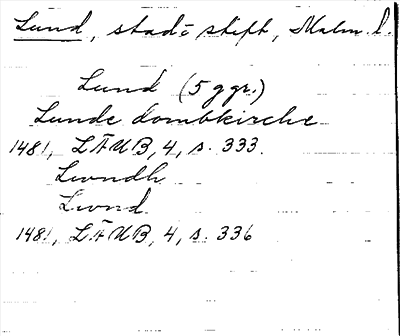 Lund, stad o stift, Malm. l.
Lund (5 ggr.)
Lunde dombkirche
1481, LÄUB, 4, s. 333.
Lwndh
Lwnd
1481, LÄUB, 4, s. 336